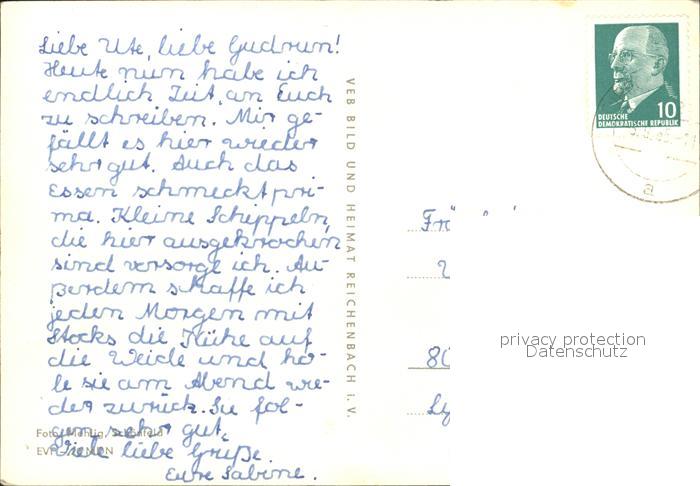 Liebe Ute, liebe Gudrun!
Heute nun habe ich
endlich Zeit, an Euch
zu schreiben. Mir ge-
fällt es hier wieder
sehr gut. Auch das
Essen schmeckt pri-
ma. Kleine Schippeln,
die hier ausgekrochen
sind versorge ich. Au-
ßerdem schaffe ich
jeden Morgen mit
Stocks die Kühe auf
die Weide und ho-
le sie am Abend wie-
der zurück. Sie fol-
gen sehr gut.
Viele liebe Grüße.
Eure Sabine.
Foto: Mehlig,
VEB BILD UND HEIMAT REICHENBACH i. V.
10
DEUTSCHE
DEMOKRATISCHE REPUBLIK
a
Frä
80
privacy protection
Datenschutz